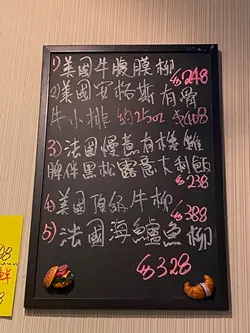 1) 美國牛腹膜柳 $248
2) 美國安格斯有骨
牛小排 約25oz $408
3) 法國慢煮有機雞
脾伴黑松露意大利飯
$238
4) 美國頂級牛柳 $388
5) 法國海鱸魚柳
$328
鮮